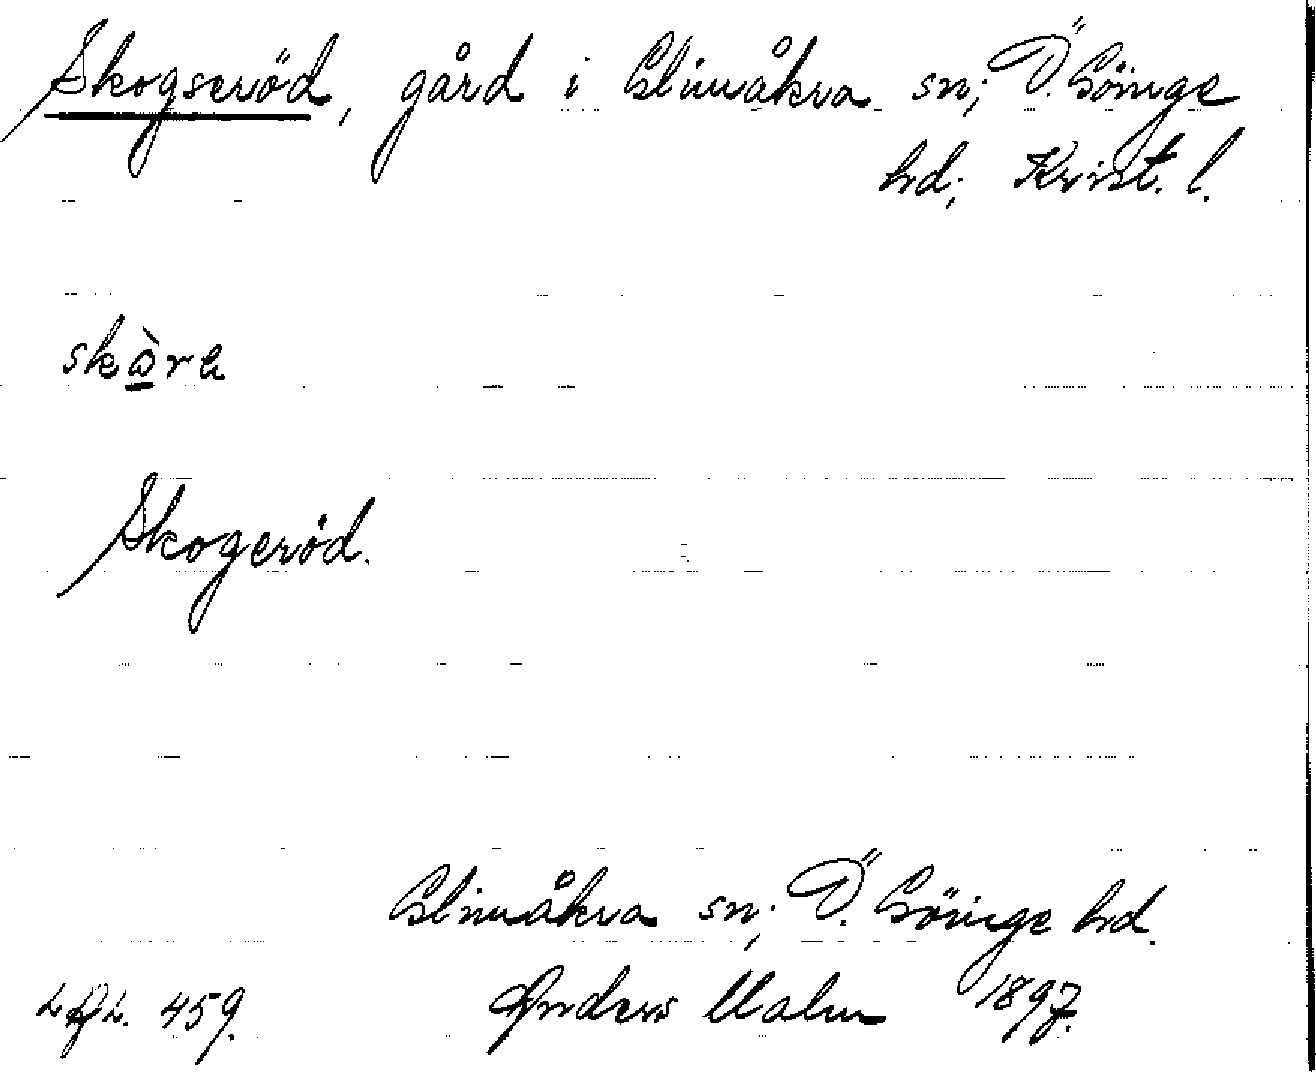 Skogseröd, gård i Glimåkra sn; Ö. Göinge
hd; Krist. l.
skòra
Skogeröd.
Glimåkra sn; Ö. Göinge hd.
459. Anders Malm 1897.